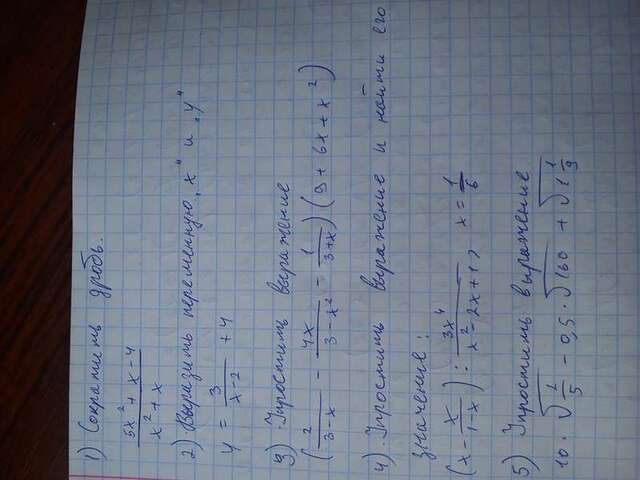 1) Сократить дробь.
(5x² + x - 4)/(x² + x)
2) Выразить переменную „x" и „y"
y = 3/(x - 2) + 4
3) Упростить выражение
(2/(3 - x) - 4x/(3 - x²) - 1/(3 + x))(9 + 6x + x²)
4) Упростить выражение и найти его
значение:
(x - x/(1 - x)) : 3x⁴/(x² - 2x + 1) x = 1/6
5) Упростить выражение
10 · √(1/5) - 0,5 · √160 + √(1 1/9)